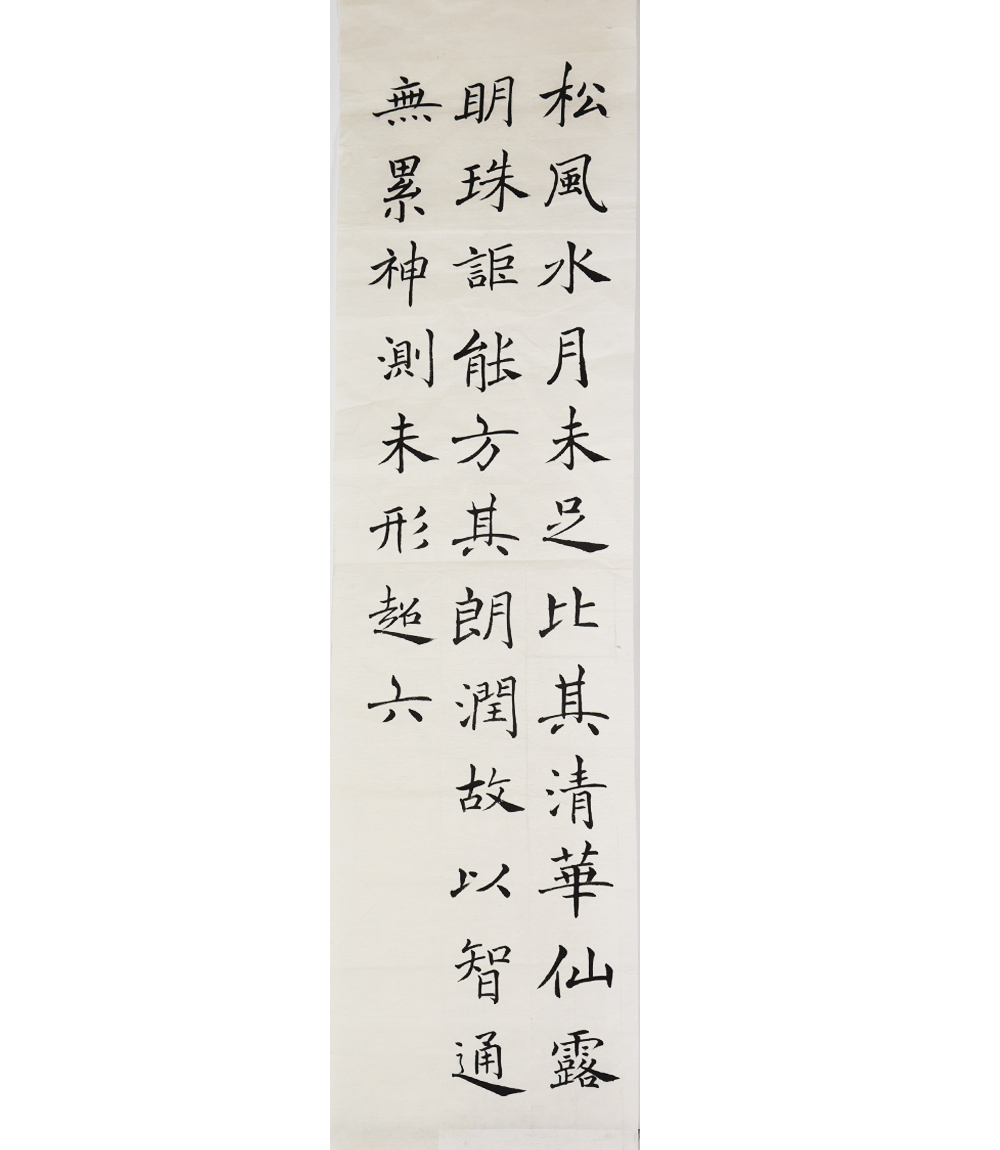 松風水月未足比其清華仙露
明珠詎能方其朗潤故以智通
無累神測未形超六